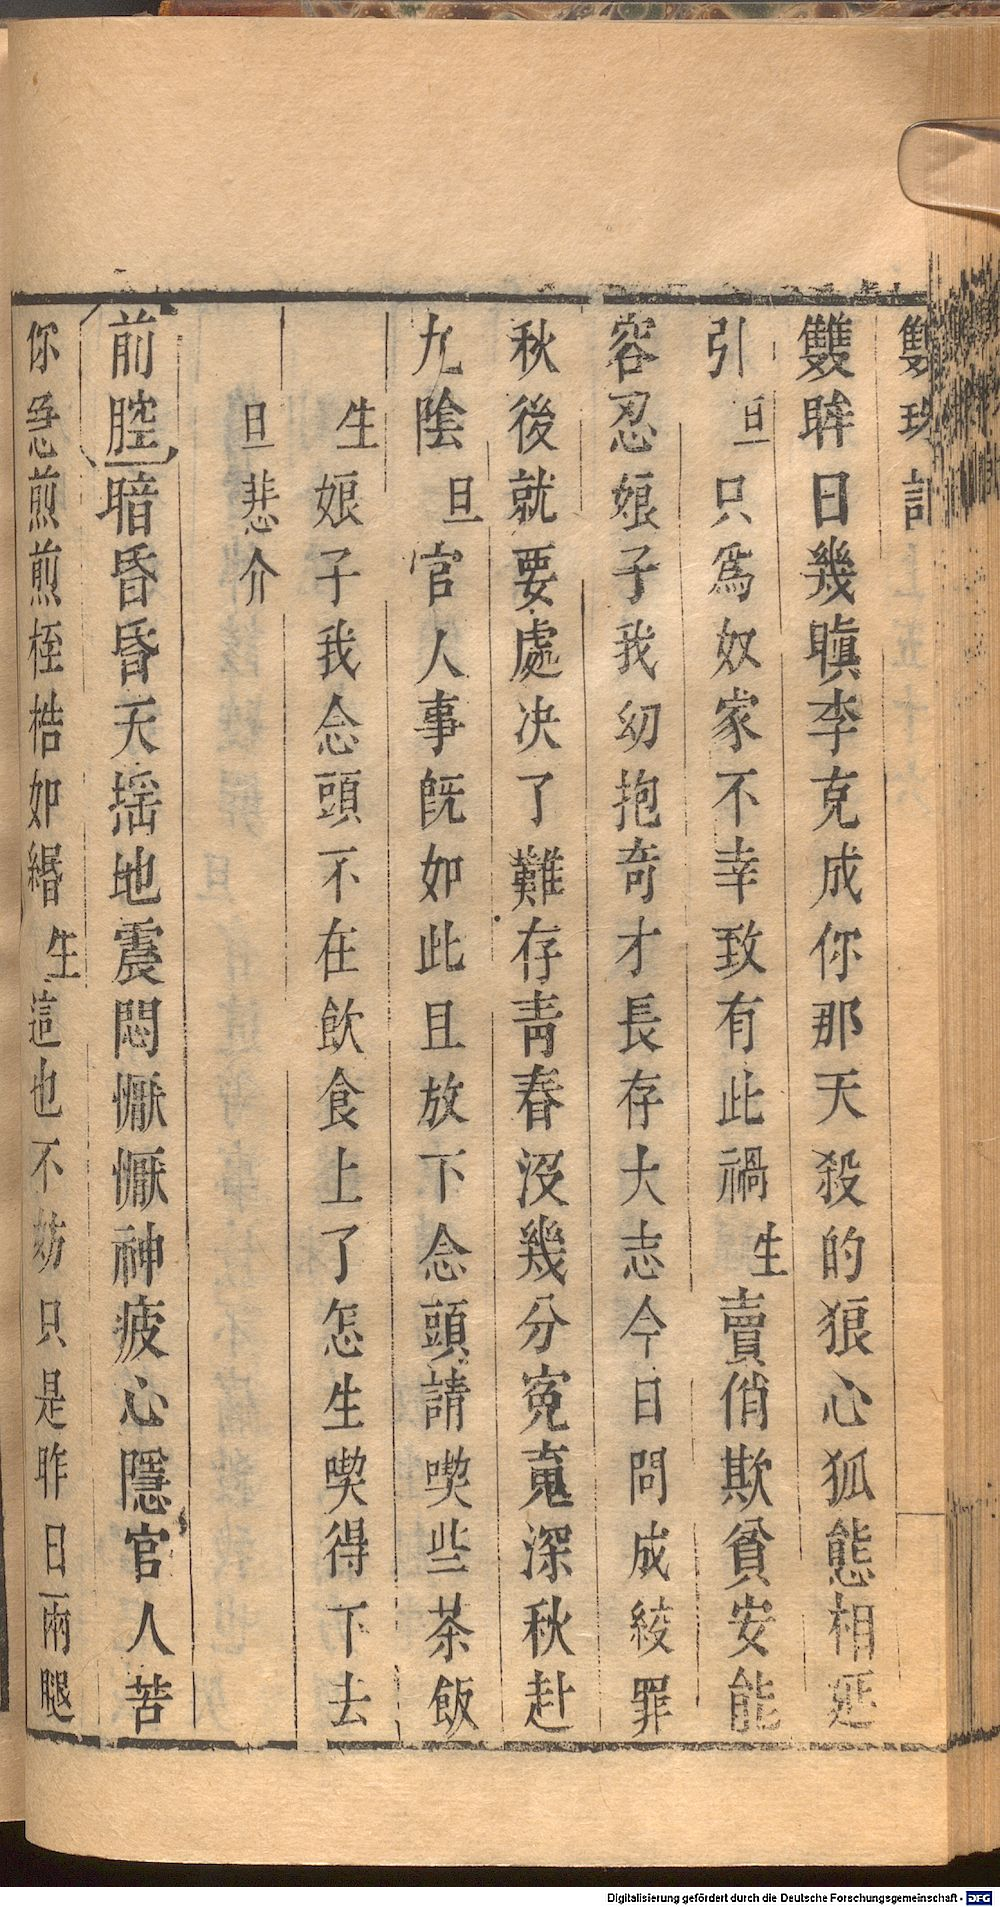 雙珠記
雙眸日幾瞋李克成你那天殺的狠心狐態相延
引旦只爲奴家不幸致有此禍生賣俏欺貧安能
容忍娘子我幼抱奇才長存大志今日問成絞罪
秋後就要處决了難存青春沒幾分寃䰟深秋赴
九陰旦官人事旣如此且放下念頭請喫些茶飯
生娘子我念頭不在飲食上了怎生喫得下去
旦悲介
前腔暗昏昏天揺地震悶懨懨神疲心隱官人苦
你忍煎煎桎梏如緡生這也不妨只是昨日兩腿
Digitalisierung gefördert durch die Deutsche Forschungsgemeinschaft - DFG